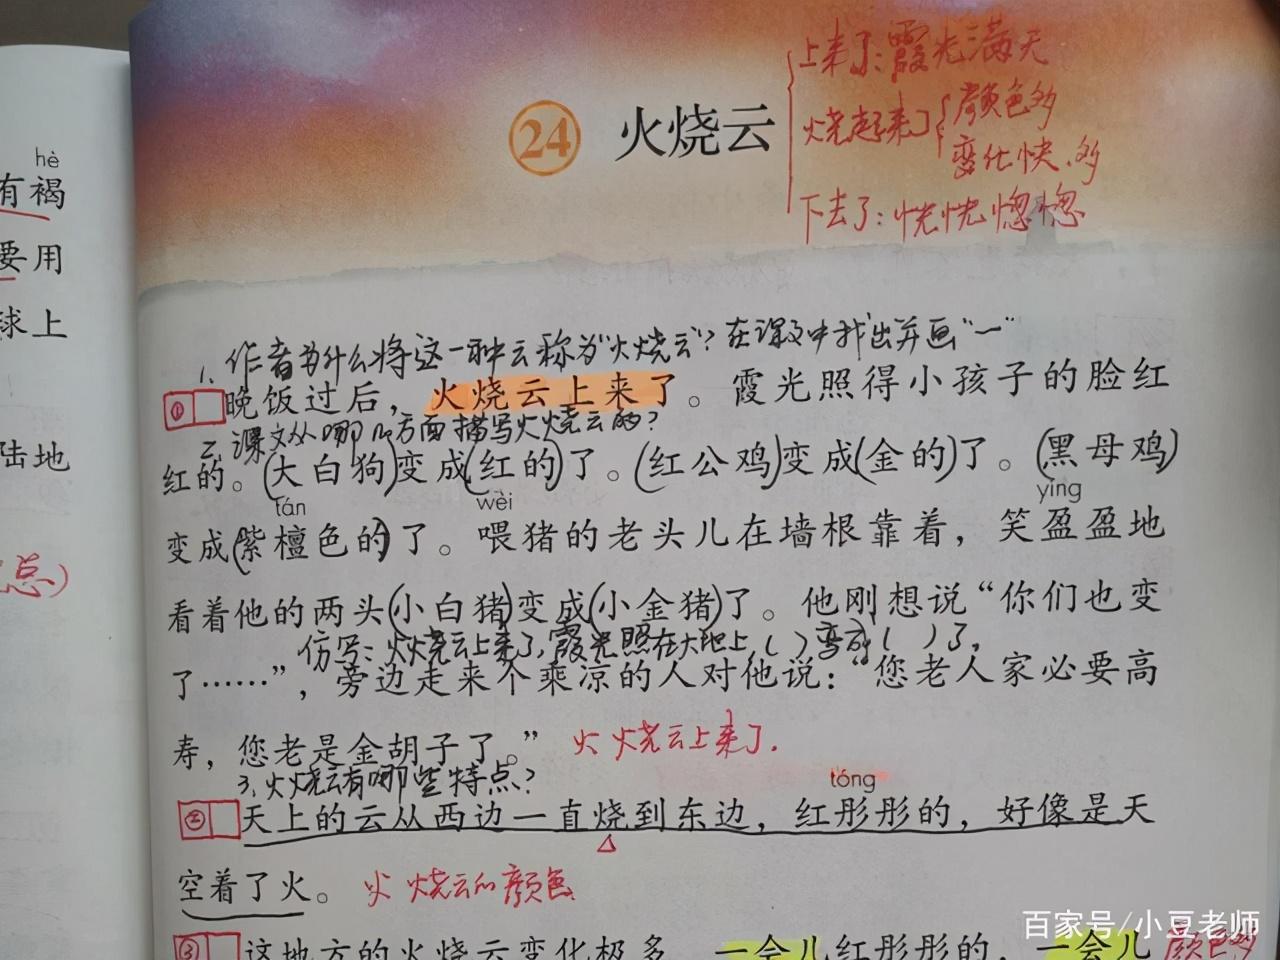 hè
有褐
要用
球上
陆地
点)
24 火烧云
上来了:霞光满天
烧起来了
颜色多
变化快、多
下去了:恍恍惚惚
1、作者为什么将这一种云称为“火烧云”?在课文中找出并画“一”
①晚饭过后,火烧云上来了。霞光照得小孩子的脸红
2、课文从哪几方面描写火烧云的?
红的。(大白狗)变成(红的)了。(红公鸡)变成(金的)了。(黑母鸡)
tán wèi yíng
变成(紫檀色的)了。喂猪的老头儿在墙根靠着,笑盈盈地
看着他的两头(小白猪)变成(小金猪)了。他刚想说“你们也变
仿写:火烧云上来了,霞光照在大地上,( )变成( )了。
了……”,旁边走来个乘凉的人对他说:“您老人家必要高
寿,您老是金胡子了。” 火烧云上来了.
3、火烧云有哪些特点?
tóng
②天上的云从西边一直烧到东边,红彤彤的,好像是天
空着了火。 火烧云的颜色
③这地方的火烧云变化极多,一会儿红彤彤的,一会儿 颜色多
百家号/小豆老师